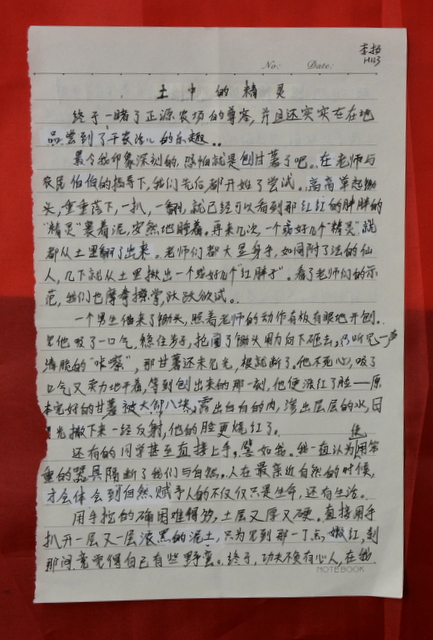 李扬
No: Date:
土中的精灵
终于一睹了正源农场的尊容,并且还实实在在地
品尝到了干农活儿的乐趣。
最令我印象深刻的,恐怕就是刨甘薯了吧。在老师与
农民伯伯的指导下,我们先后都开始了尝试。高高举起锄
头,重重落下,一扒,一翻,就已经可以看到那红红的胖胖的
"精灵"裹着泥,安然地睡着,再来几次,一个或好几个"精灵"就
都从土里翻了出来。老师们都大显身手,如同附了法的仙
人,几下就从土里揪出一个或好几个"红胖子"。看了老师们的示
范,我们也摩拳擦掌,跃跃欲试。
一个男生借来了锄头,照着老师的动作有板有眼地开刨。
只他吸了一口气,稳住步子,抡圆了锄头用力向下砸去,只听见一声
清脆的"咔嚓",那甘薯还未见光,根就断了。他不死心,吸了
口气又卖力地干着,等到刨出来的那一刻,他便涨红了脸——原
本完好的甘薯被大卸八块,露出白白的肉,渗出层层的水,日
光撒下来一经反射,他的脸更烧红了。
还有的同学甚至直接上手,譬如我。我一直认为使用笨
重的器具隔断了我们与自然。人在最亲近自然的时候,
才会体会到自然赋予人的不仅仅只是生命,还有生活。
用手挖的确困难得多,土层又厚又硬。直接用手
扒开一层又一层漆黑的泥土,只为见到那一丁点嫩红,刹
那间竟觉得自己有些野蛮。终于,功夫不负有心人,在我
NOTEBOOK